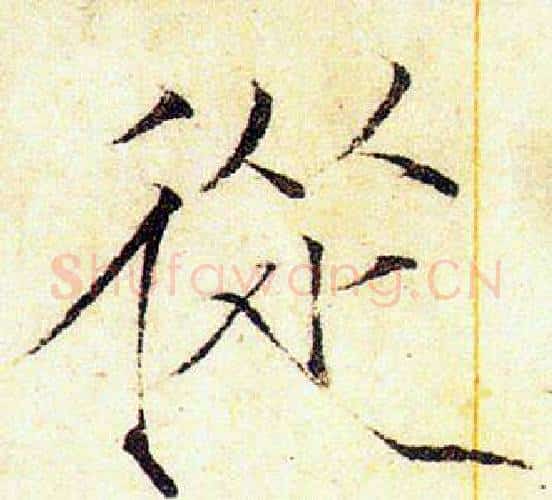 從
Shufawang.CN